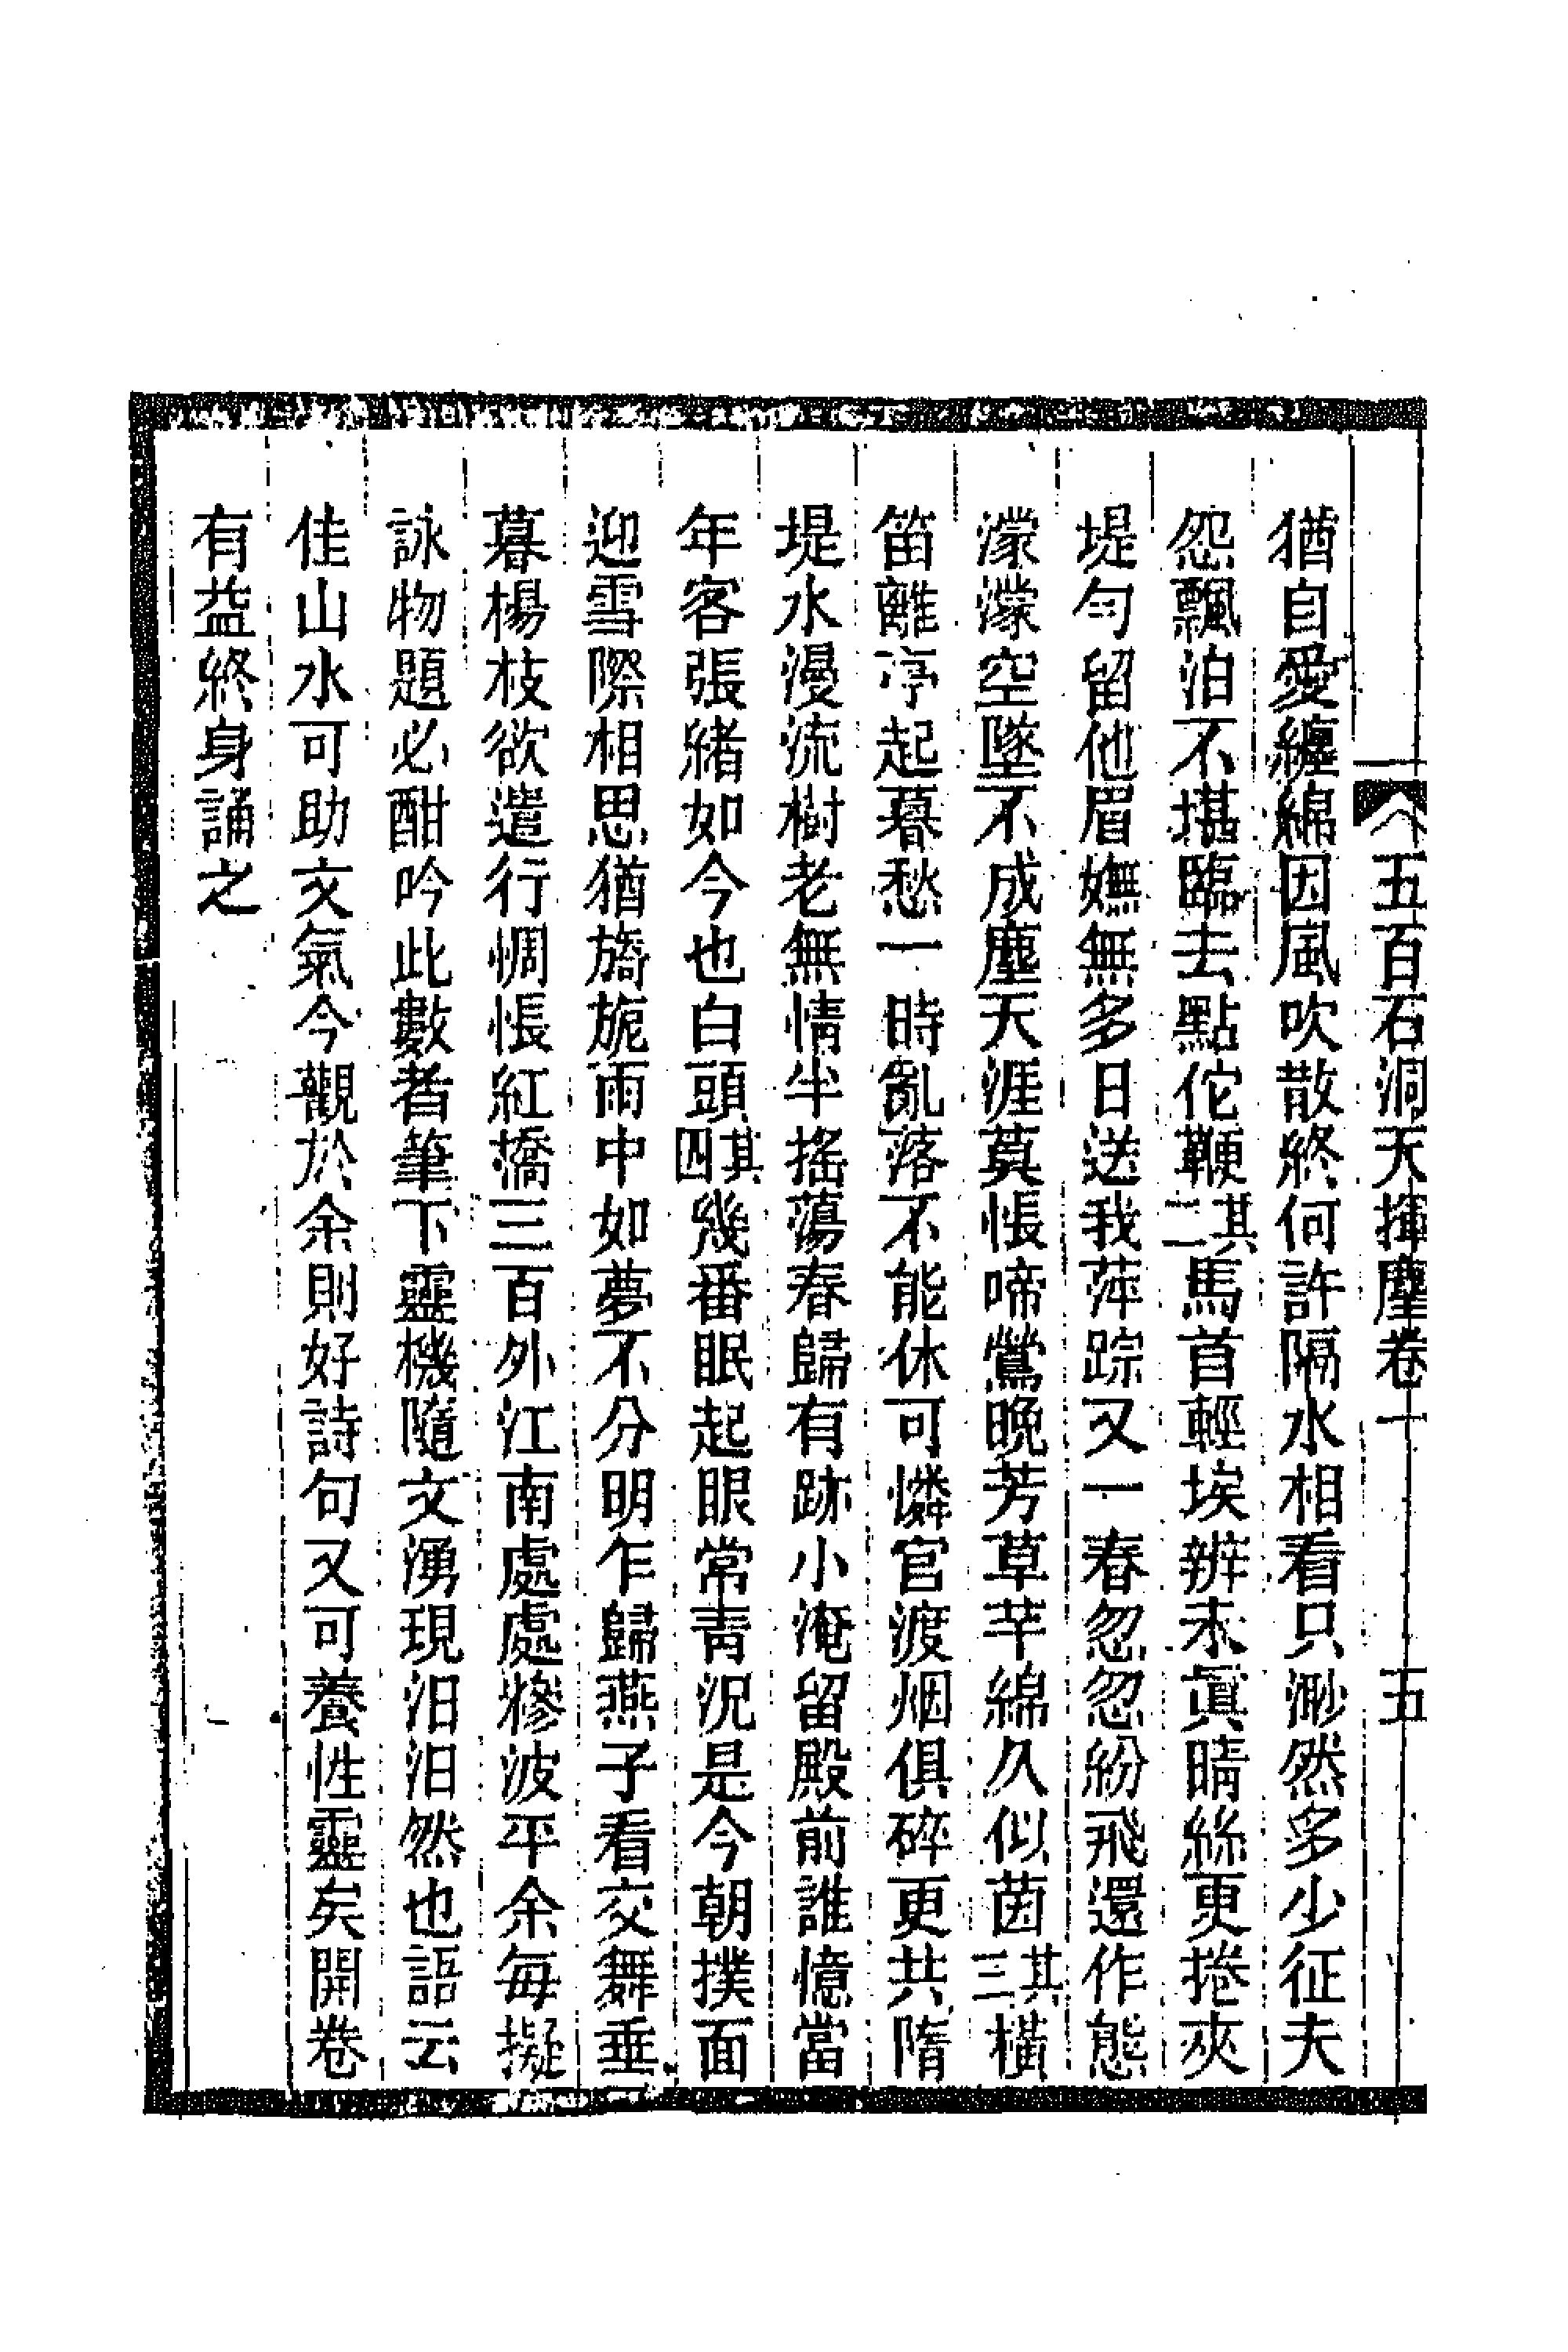 五百石洞天揮麈卷一　五
猶自愛纏綿因風吹散終何許隔水相看只渺然多少征夫
怨飄泊不堪臨去點佗鞭其二馬首輕埃辨未眞晴絲更捲夾
堤勻留他眉嫵無多日送我萍踪又一春忽忽紛飛還作態
濛濛空墜不成塵天涯莫悵啼鶯晚芳草芊綿久似茵其三橫
笛離亭起暮愁一時亂落不能休可憐官渡烟俱碎更共隋
堤水漫流樹老無情半搖蕩春歸有跡小淹留殿前誰憶當
年客張緒如今也白頭其四幾番眠起眼常靑況是今朝撲面
迎雪際相思猶旖旎雨中如夢不分明乍歸燕子看交舞垂
暮楊枝欲遣行惆悵紅橋三百外江南處處糝波平余每擬
詠物題必酣吟此數者筆下靈機隨文湧現汩汩然也語云
佳山水可助文氣今觀於余則好詩句又可養性靈矣開卷
有益終身誦之